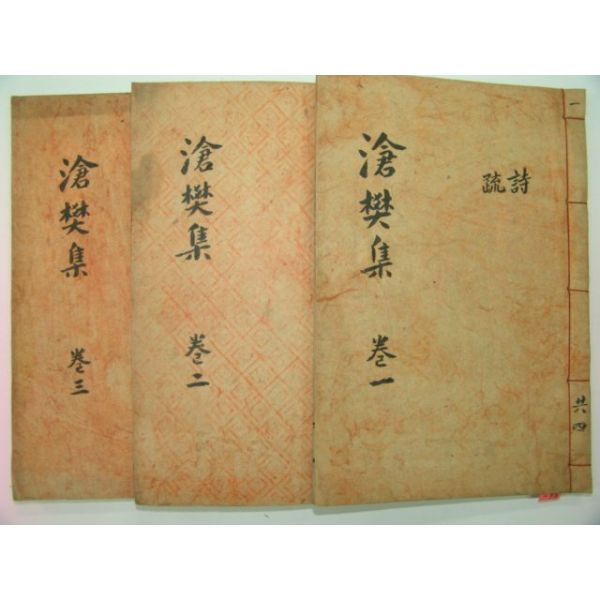 詩
疏
滄樊集
卷一
一
共四
滄樊集
卷二
滄樊集
卷三